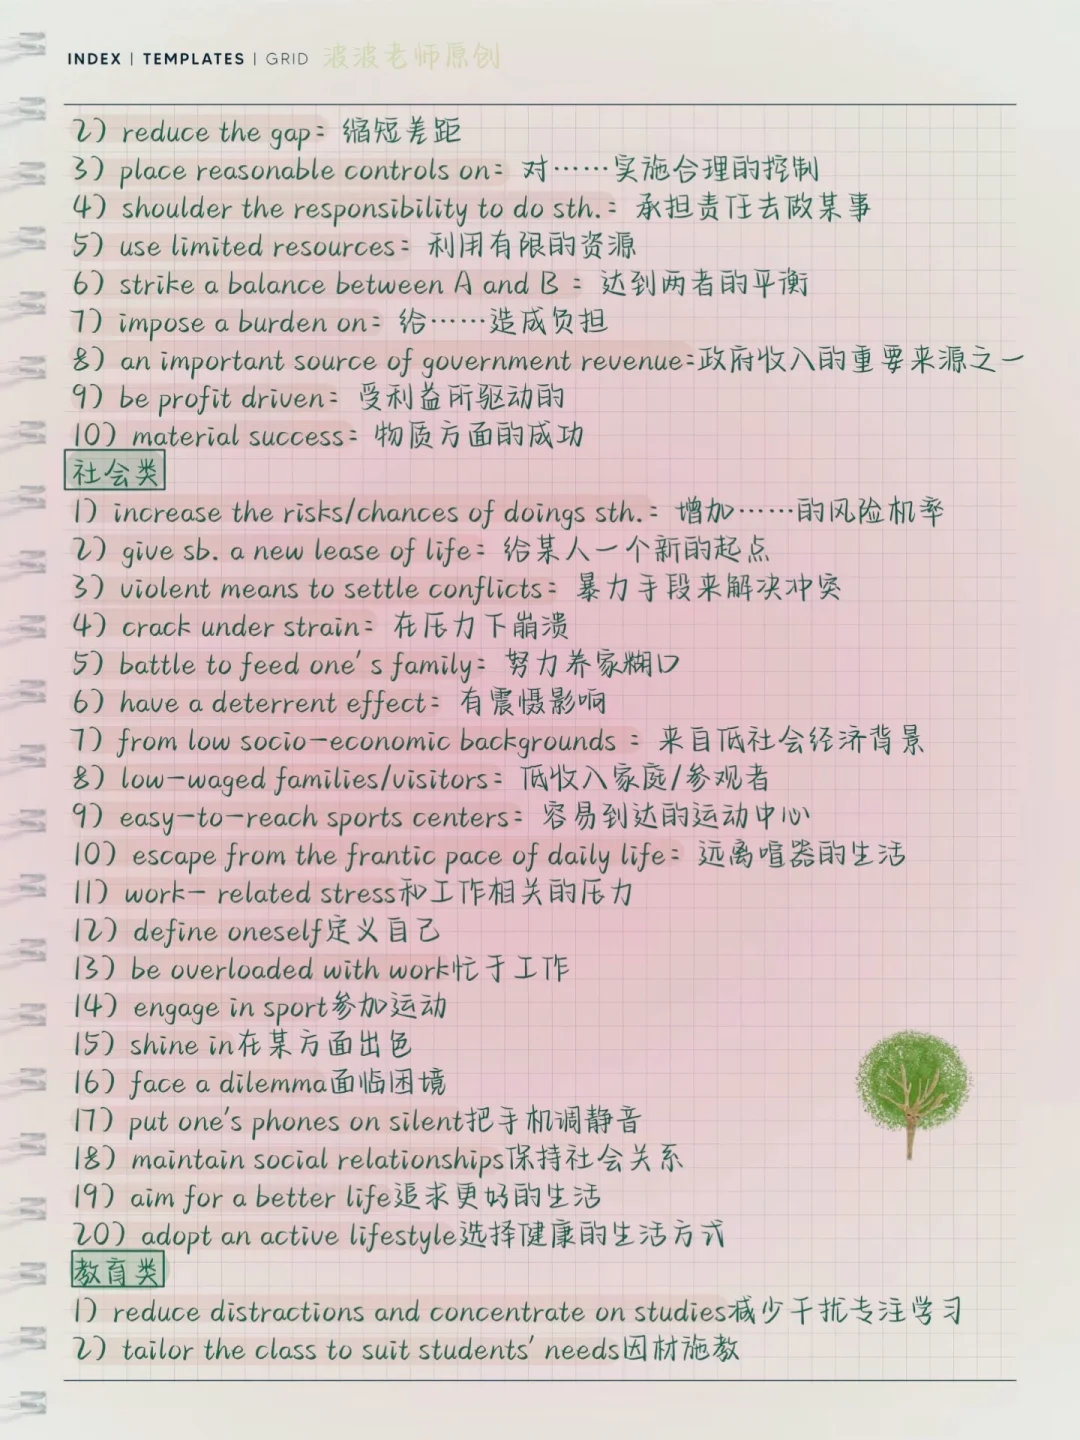 INDEX | TEMPLATES | GRID 波波老师原创
2) reduce the gap: 缩短差距
3) place reasonable controls on: 对……实施合理的控制
4) shoulder the responsibility to do sth.: 承担责任去做某事
5) use limited resources: 利用有限的资源
6) strike a balance between A and B : 达到两者的平衡
7) impose a burden on: 给……造成负担
8) an important source of government revenue:政府收入的重要来源之一
9) be profit driven: 受利益所驱动的
10) material success: 物质方面的成功
社会类
1) increase the risks/chances of doings sth.: 增加……的风险机率
2) give sb. a new lease of life: 给某人一个新的起点
3) violent means to settle conflicts: 暴力手段来解决冲突
4) crack under strain: 在压力下崩溃
5) battle to feed one's family: 努力养家糊口
6) have a deterrent effect: 有震慑影响
7) from low socio-economic backgrounds : 来自低社会经济背景
8) low-waged families/visitors: 低收入家庭/参观者
9) easy-to-reach sports centers: 容易到达的运动中心
10) escape from the frantic pace of daily life: 远离喧嚣的生活
11) work- related stress和工作相关的压力
12) define oneself定义自己
13) be overloaded with work忙于工作
14) engage in sport参加运动
15) shine in在某方面出色
16) face a dilemma面临困境
17) put one's phones on silent把手机调静音
18) maintain social relationships保持社会关系
19) aim for a better life追求更好的生活
20) adopt an active lifestyle选择健康的生活方式
教育类
1) reduce distractions and concentrate on studies减少干扰专注学习
2) tailor the class to suit students' needs因材施教